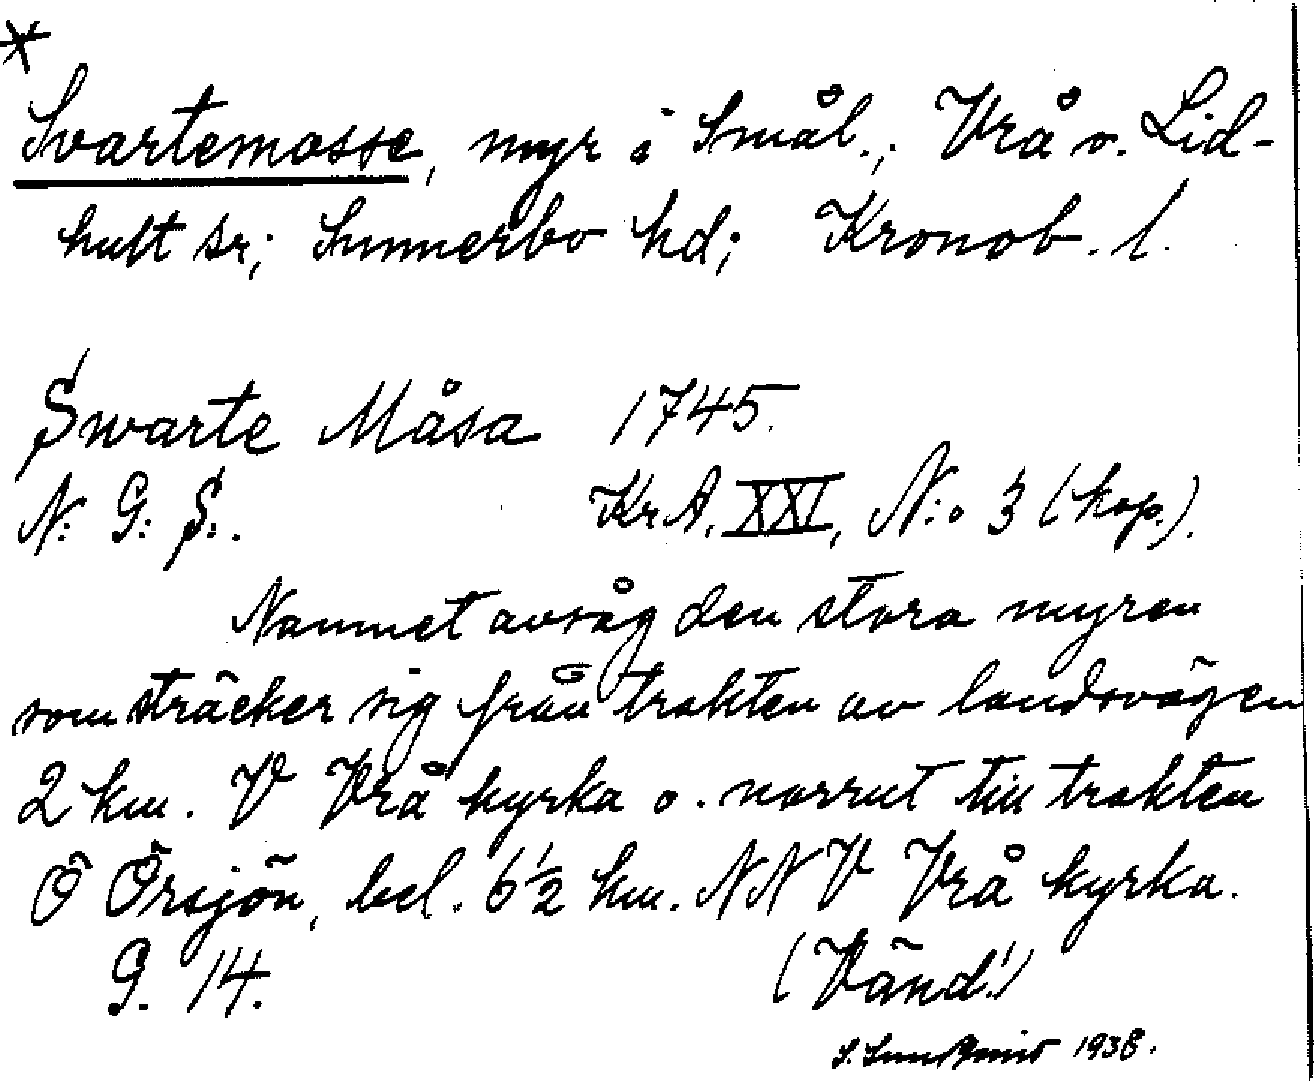 *
Svartemosse, myr i Smål.; Vrå o. Lid-
hult sr; Sunnerbo hd; Kronob. l.
Swarte Måsa 1745.
N: G: S:. Kr A. XXI, N:o 3 (kop.).
Namnet avsåg den stora myren
som sträcker sig från trakten av landsvägen
2 km. V Vrå kyrka o. norrut till trakten
Ö Örsjön, bel. 6 1/2 km. NNV Vrå kyrka.
G. 14. (Vänd!)
1938.